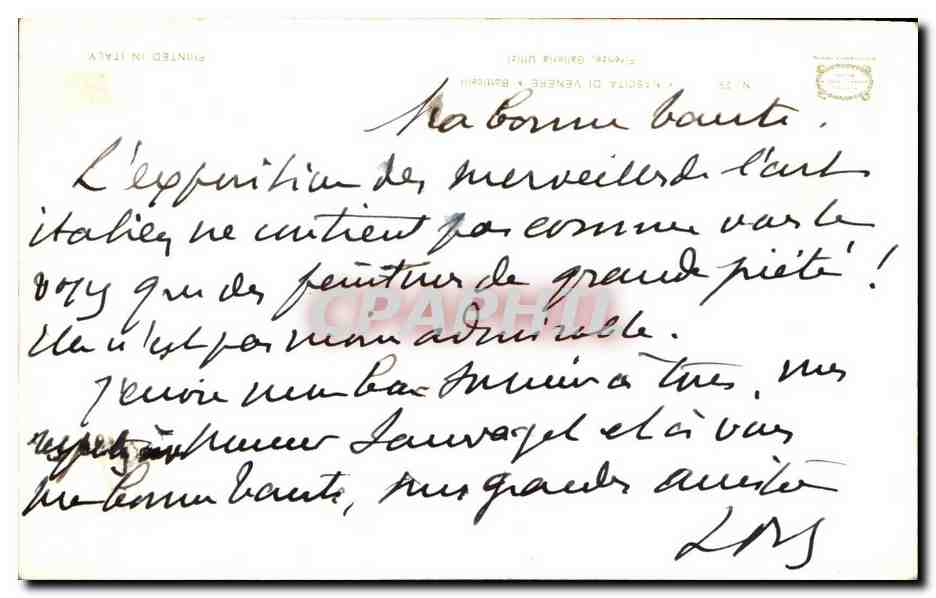 PRINTED IN ITALY
Firenze, Galleria Uffizi
N. 29 NASCITA DI VENERE Botticelli
Ma bonne tante.
L'exposition des merveilles de l'art
italien ne contient pas comme vous le
voyez que des peintures de grande piété!
Elle n'est pas moins admirable.
CPARAMA
J'envoie mon bon souvenir à tous, mes
respects à Sauvaget et à vous
ma bonne tante, mes grandes amitiés